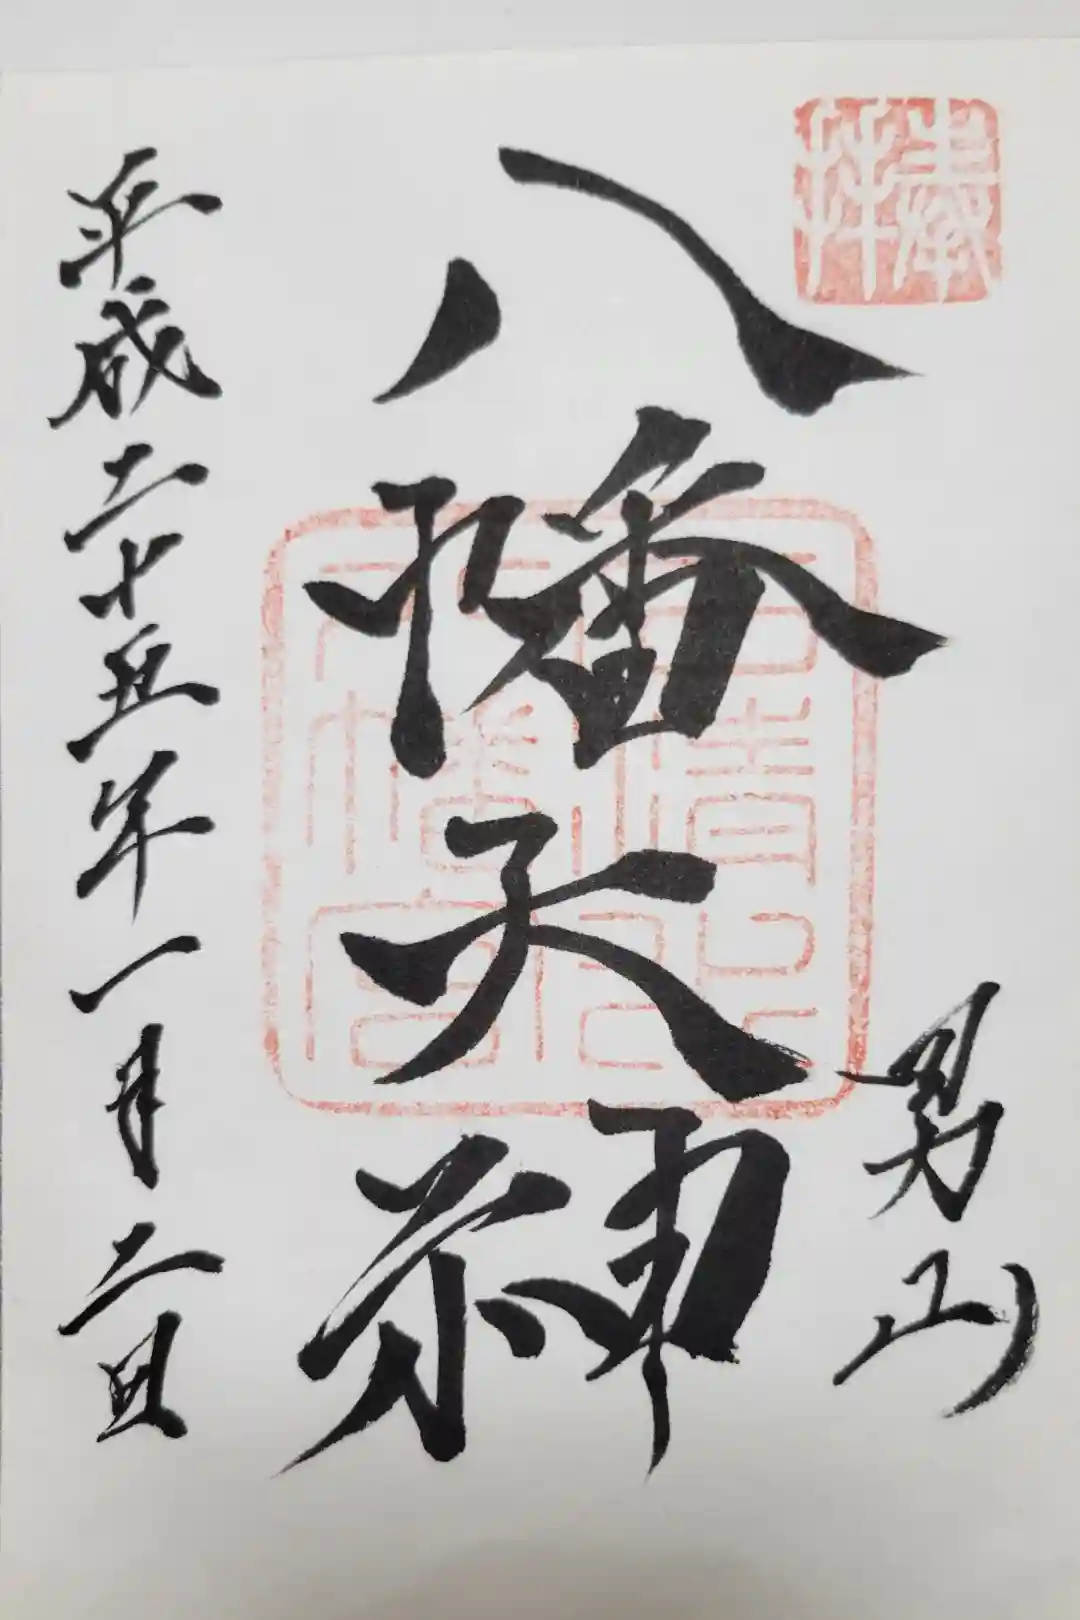 奉拝
男山
八幡大神
石清水
八幡宮
平成二十五年一月二日